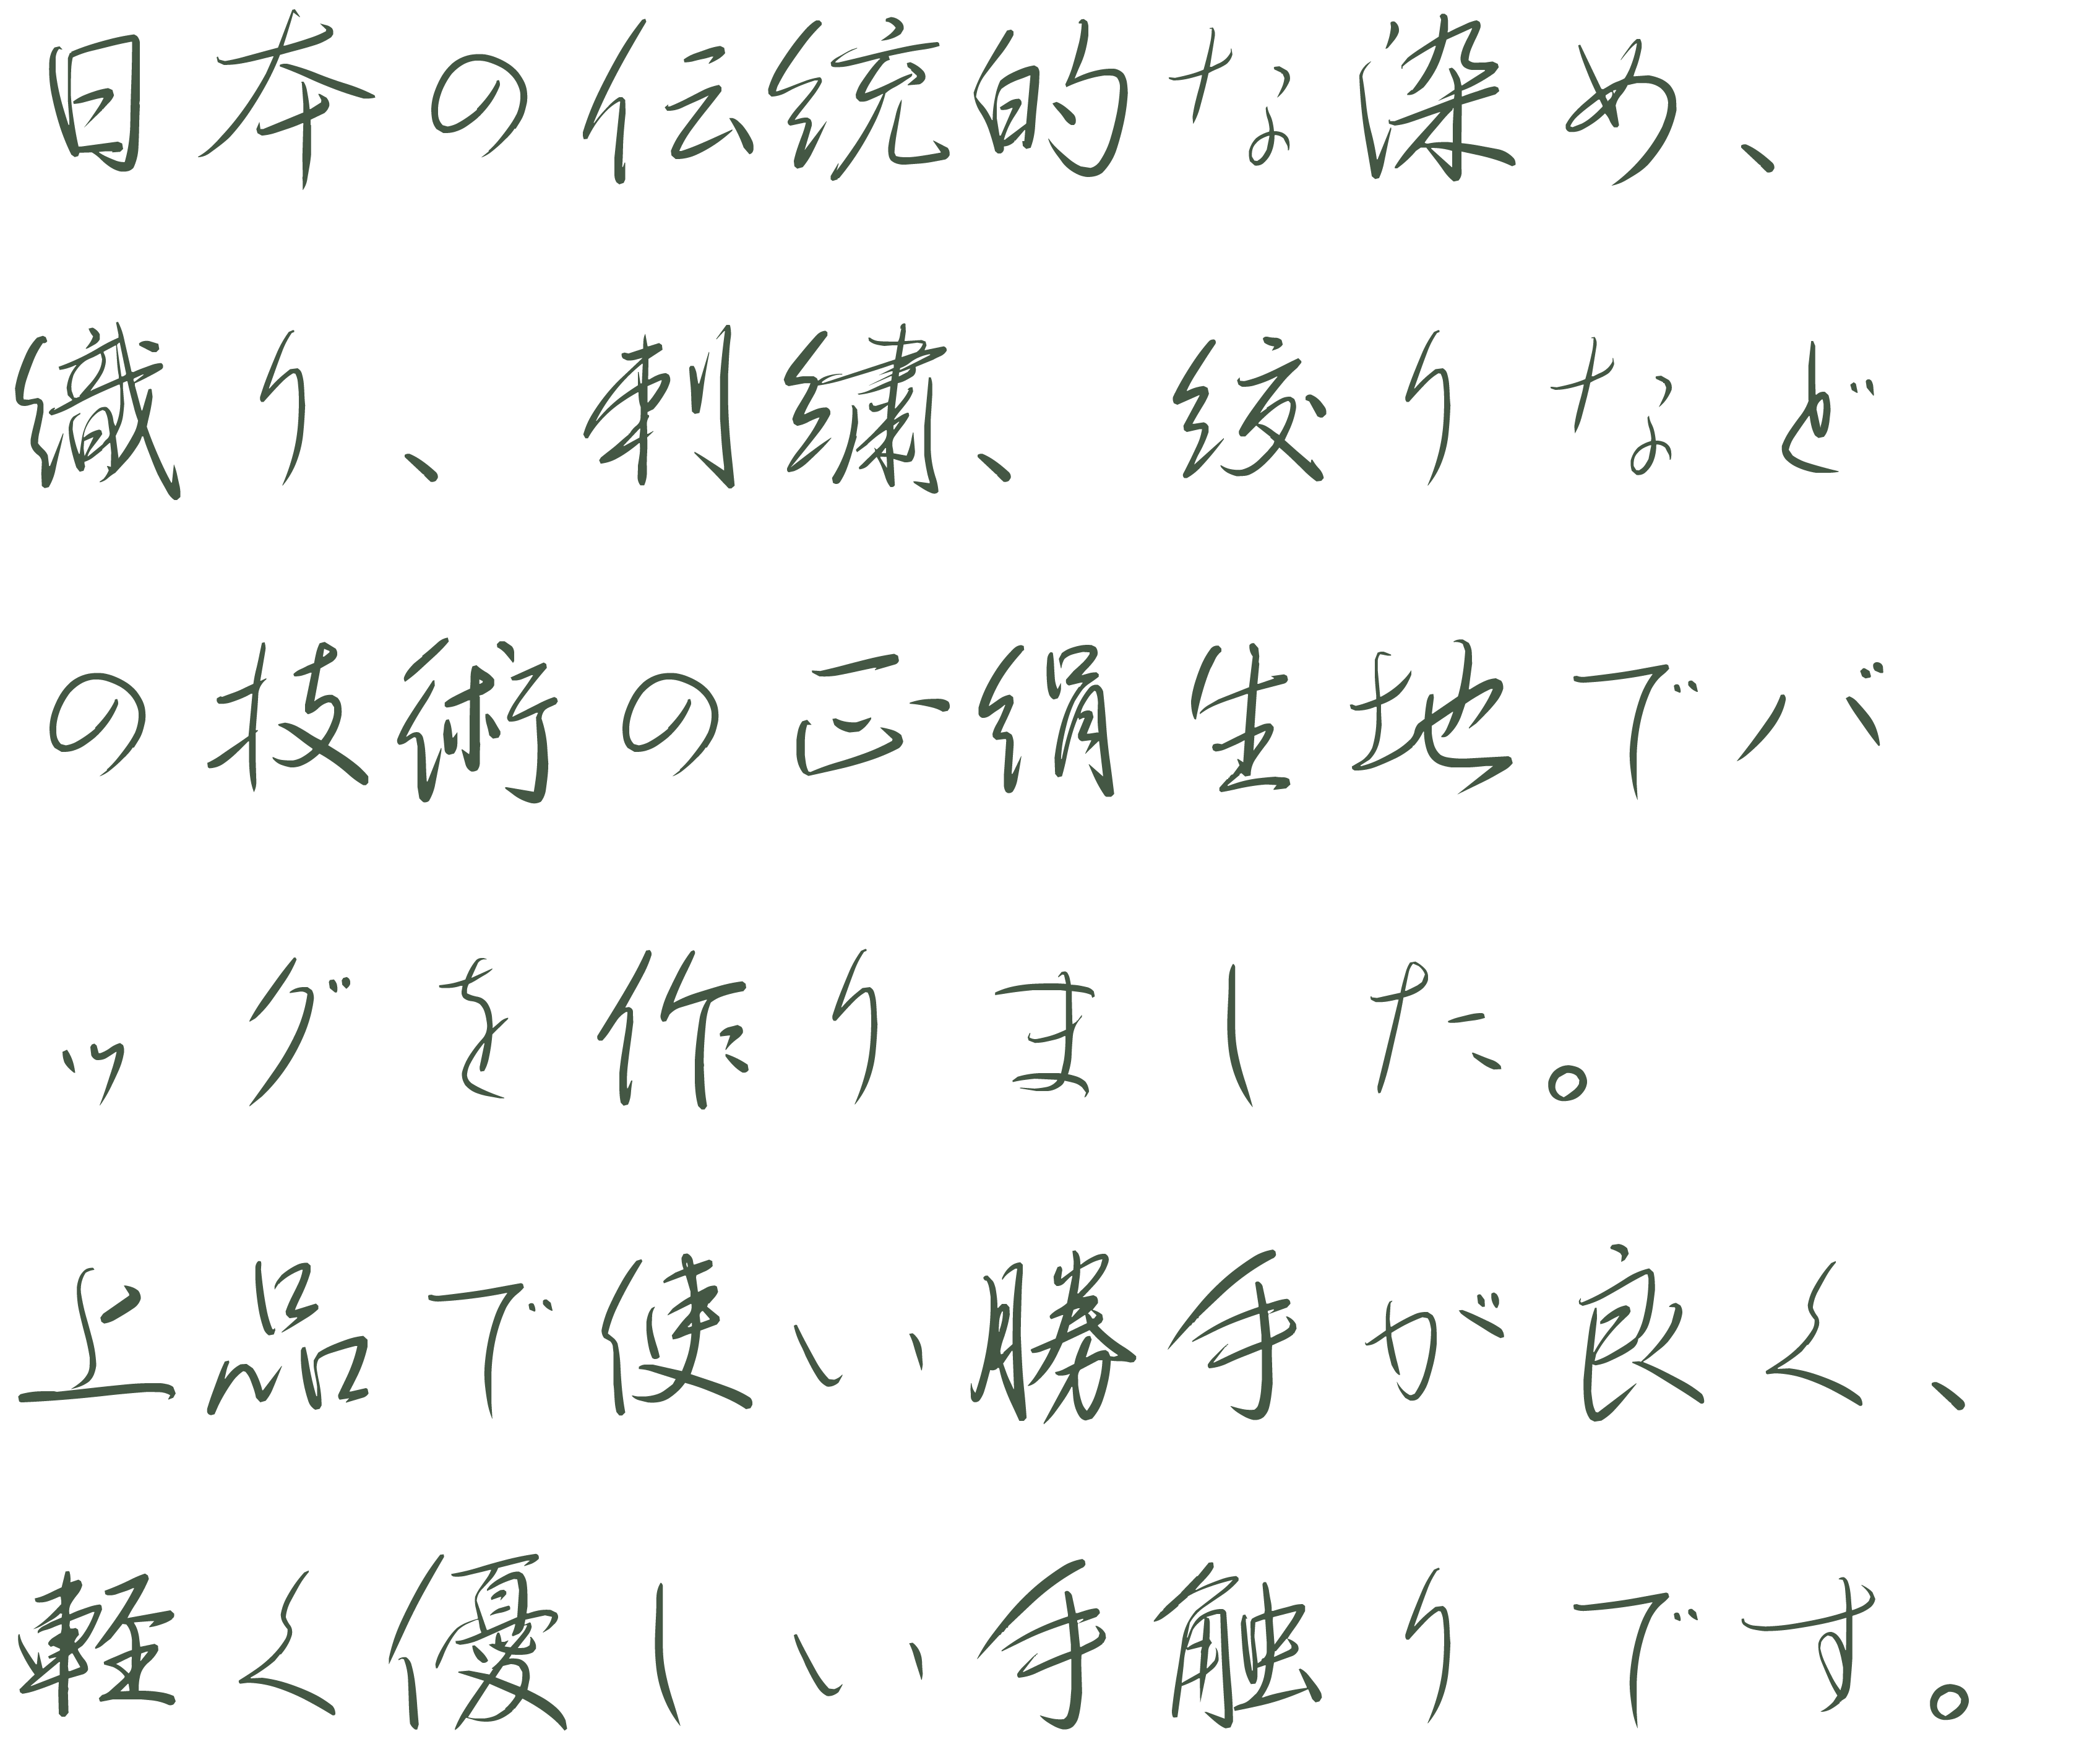 日本の伝統的な染め、
織り、刺繍、絞りなど
の技術の正絹生地でバ
ッグを作りました。
上品で使い勝手が良く、
軽く優しい手触りです。